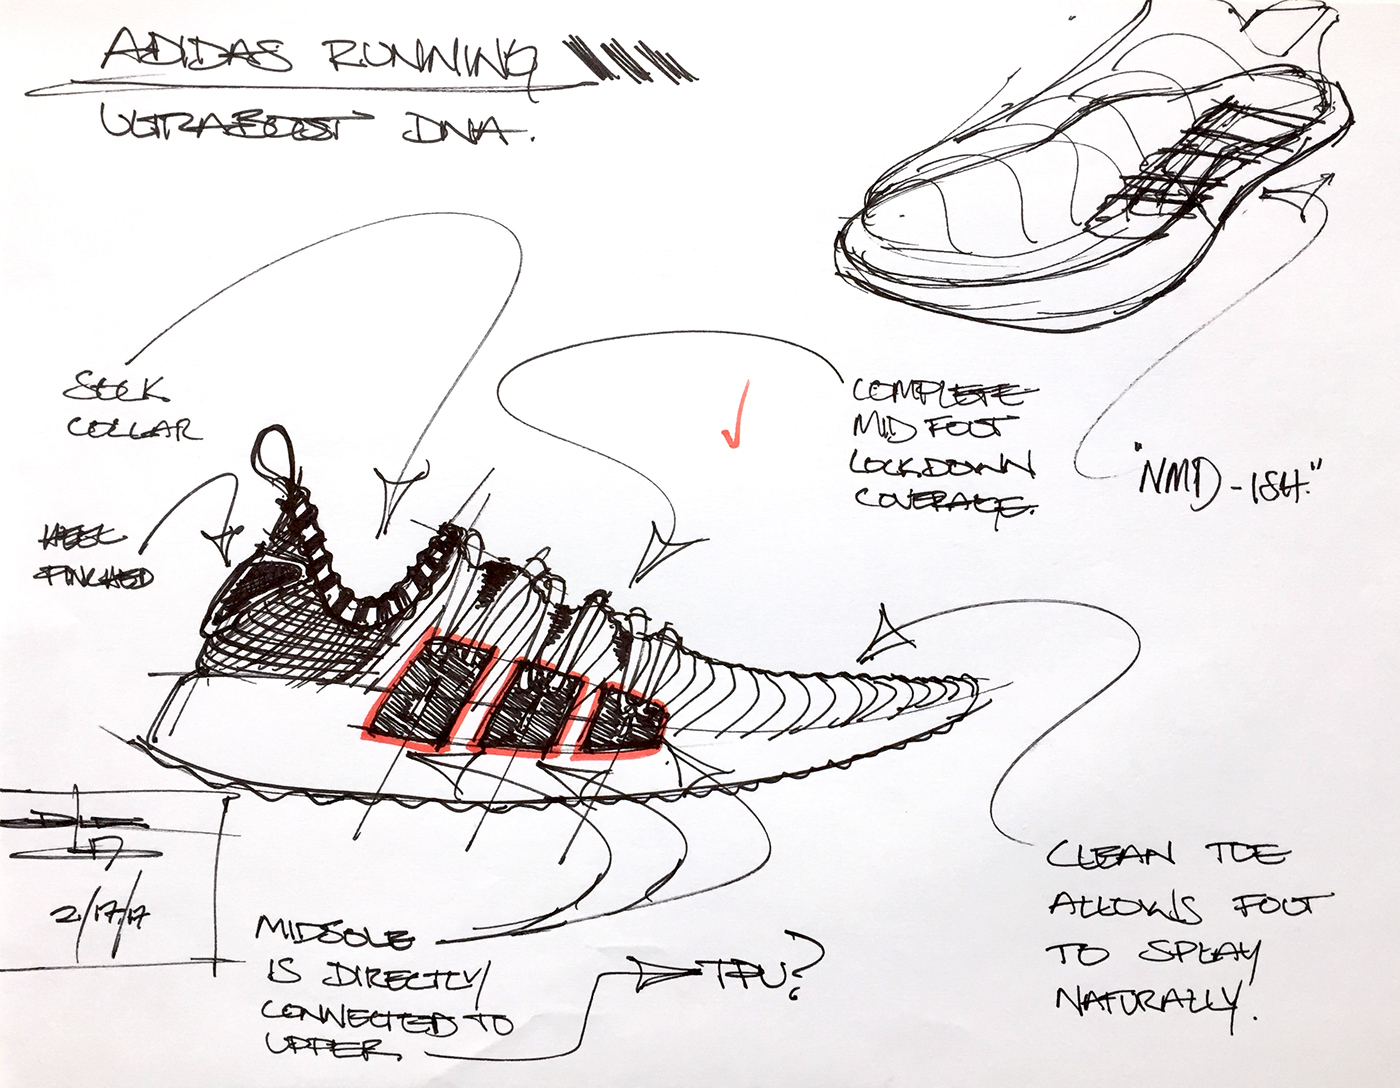 ADIDAS RUNNING
ULTRABOOST DNA.
SOCK
COLLAR
HEEL
PINCHED
COMPLETE
MID FOOT
LOCKDOWN
COVERAGE.
"NMD-ISH."
CLEAN TOE
ALLOWS FOOT
TO SPLAY
NATURALLY.
MIDSOLE
IS DIRECTLY
CONNECTED TO
UPPER.
TPU?
2/17/17